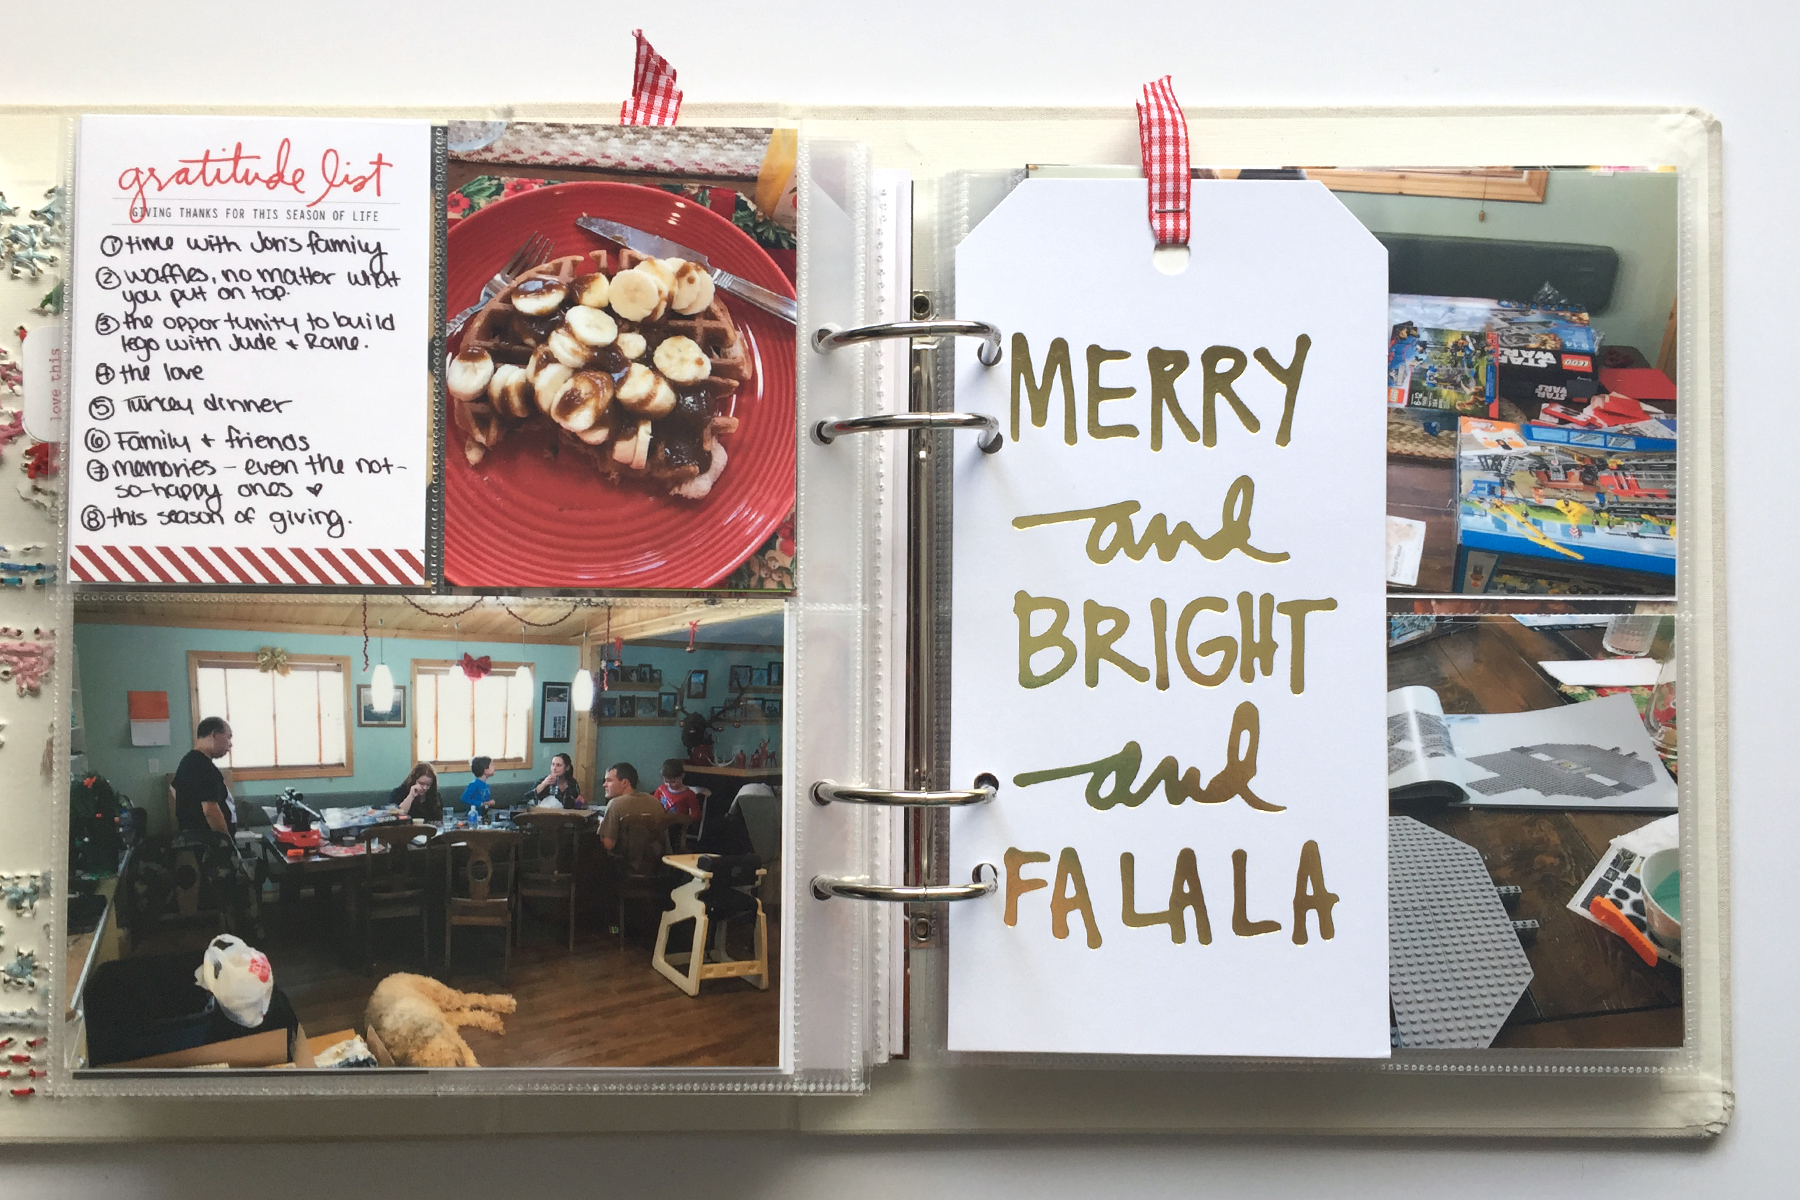 gratitude list
GIVING THANKS FOR THIS SEASON OF LIFE
① time with Jon's family
② waffles, no matter what
you put on top.
③ the opportunity to build
lego with Jude + Rane.
④ the love
⑤ Turkey dinner
⑥ Family + friends
⑦ memories - even the not-
so-happy ones ♥
⑧ this season of giving.
love this
MERRY
and
BRIGHT
and
FA LA LA
STAR
WARS
LEGO
STAR
WARS